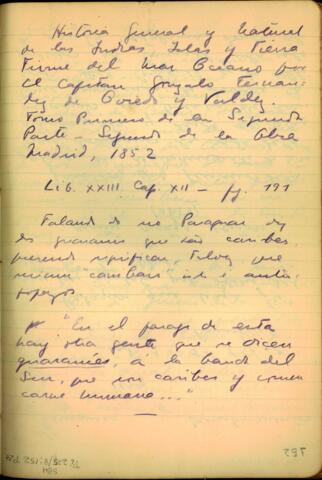 Historia General y Natural
de las Indias, Islas y Tierra
Firme del Mar Oceano por
el Capitan Gonzalo Fernan-
dez de Oviedo y Valdez.
Tomo Primero de la Segunda
Parte - Segundo de la Obra
Madrid, 1852
Lib. XXIII. Cap. XII - pg. 191
Falando no Paraguai diz
dos guaranis que são caribes,
querendo significar, talvez que
"caribes" isto é antro-
pofagos
"En el parage de esta
hay otra gente que se dicen
guaranies, á la banda del
Sur, que son caribes y comen
carne humana..."
182